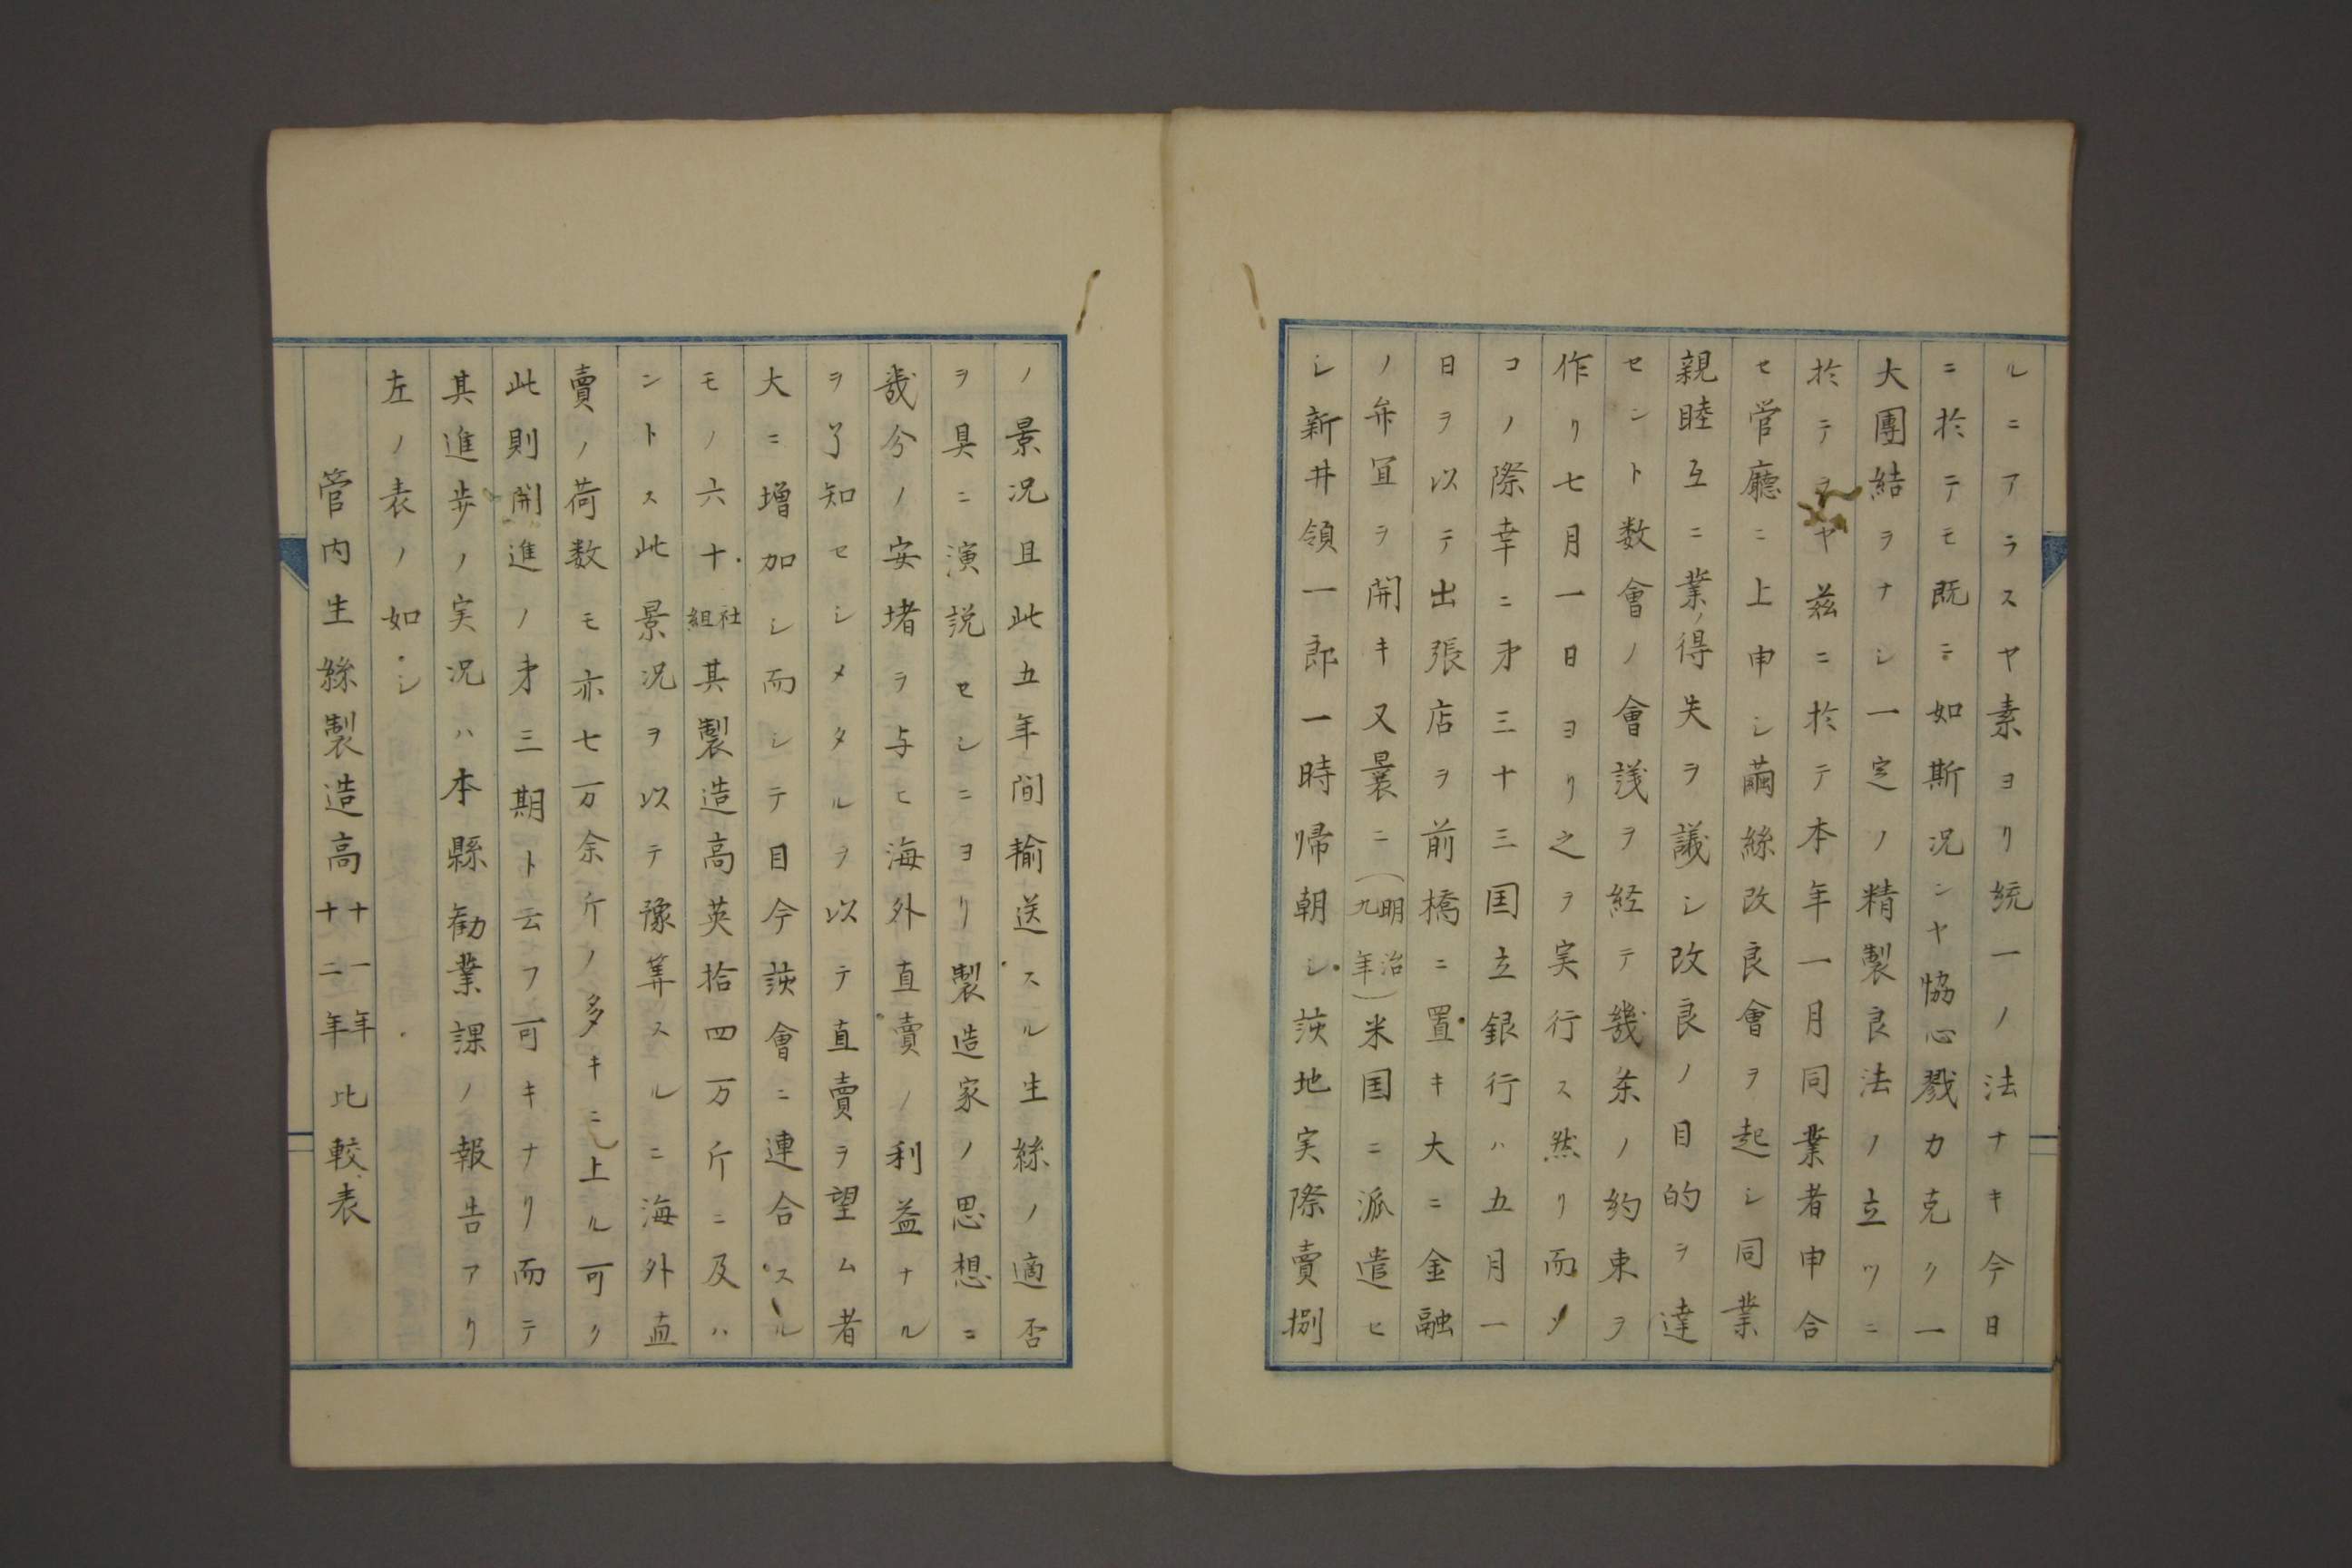 ルニアラスヤ素ヨリ統一ノ法ナキ今日
ニ於テモ既ニ如斯況ンヤ恊心戮力克ク一
大團結ヲナシ一定ノ精製良法ノ立ツニ
於テヲヤ茲ニ於テ本年一月同業者申合
セ管廳ニ上申シ繭絲改良會ヲ起シ同業
親睦互ニ業ノ得失ヲ議シ改良ノ目的ヲ達
セント数會ノ會議ヲ経テ幾条ノ約束ヲ
作リ七月一日ヨリ之ヲ実行ス然リ而〆
コノ際幸ニ才三十三国立銀行ハ五月一
日ヲ以テ出張店ヲ前橋ニ置キ大ニ金融
ノ弁宜ヲ開キ又曩ニ(明治九年)米国ニ派遣セ
シ新井領一郎一時帰朝シ該地実際賣捌
ノ景况且此五年间輸送スル生絲ノ適否
ヲ具ニ演説セシニヨリ製造家ノ思想ニ
幾分ノ安堵ヲ与ヒ海外直賣ノ利益ナル
ヲ了知セシメタルヲ以テ直賣ヲ望ム者
大ニ増加シ而シテ目今該會ニ連合スル
モノ六十社組其製造高英拾四万斤ニ及ハ
ントス此景況ヲ以テ豫算スルニ海外直
賣ノ荷数モ亦七万余斤ノ多キニ上ル可ク
此則開進ノ才三期ト云フ可キナリ而テ
其進歩ノ実況ハ本縣勧業課ノ報告アリ
左ノ表ノ如シ
管内生絲製造高十一年十二年比較表